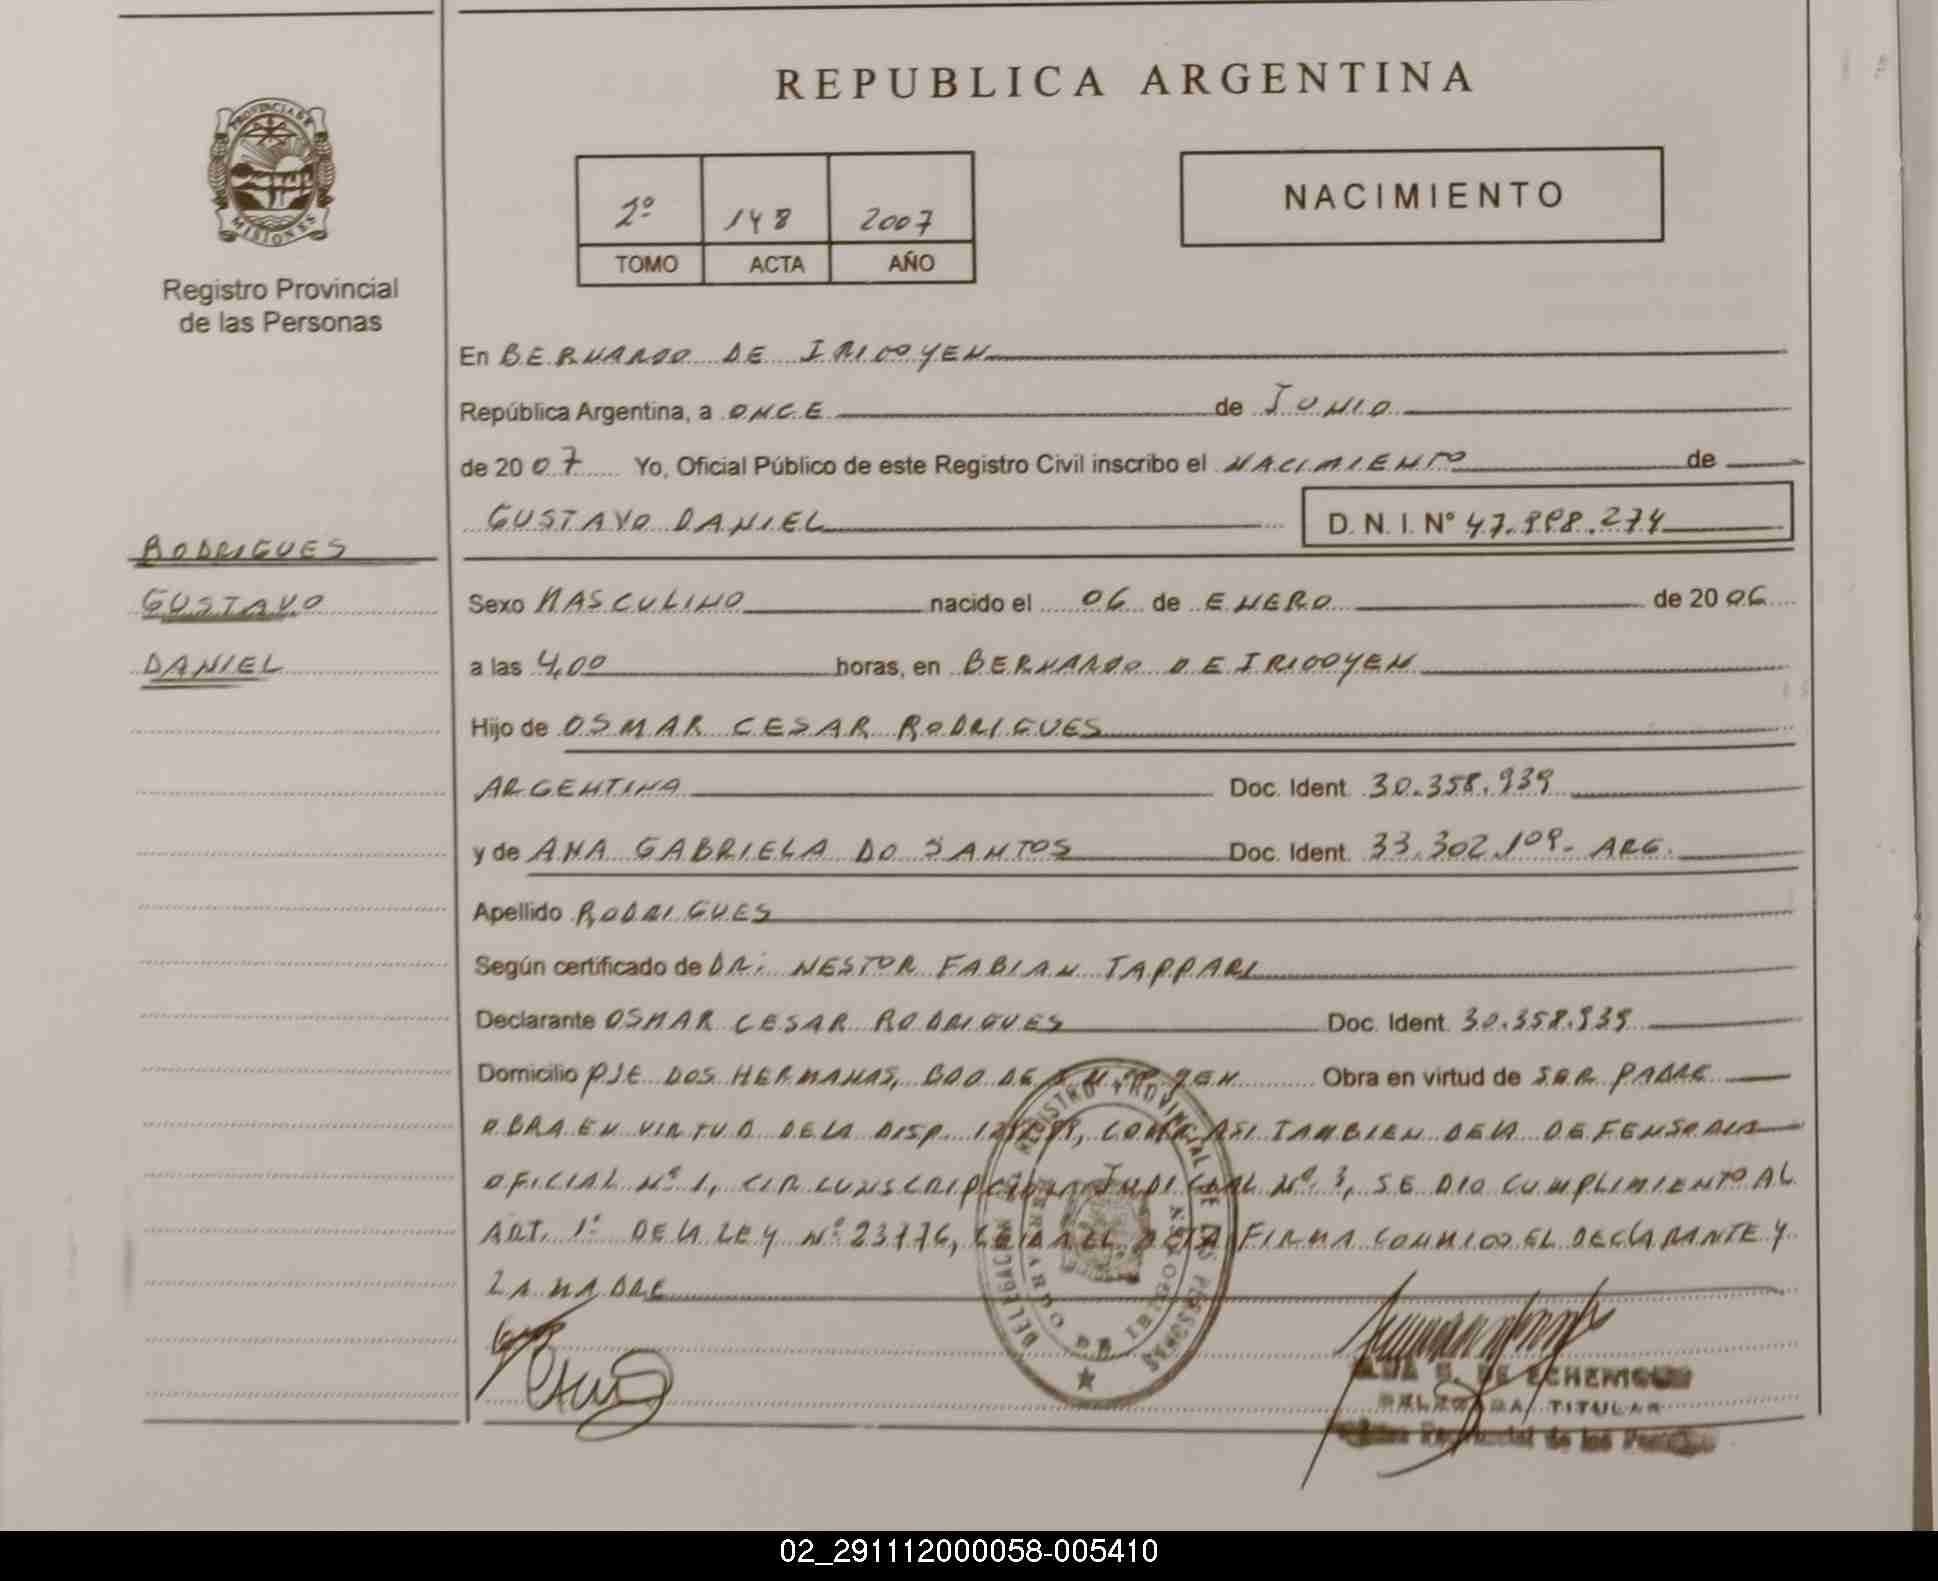 REPUBLICA ARGENTINA
PROVINCIA DE
MISIONES
Registro Provincial
de las Personas
2º 148 2007
TOMO ACTA AÑO
NACIMIENTO
En BERNARDO DE IRIGOYEN
República Argentina, a ONCE de JUNIO
de 2007 Yo, Oficial Público de este Registro Civil inscribo el NACIMIENTO de
GUSTAVO DANIEL D. N. I. Nº
RODRIGUES
GUSTAVO
DANIEL
Sexo MASCULINO nacido el 06 de ENERO de 2006
a las 4,00 horas, en BERNARDO DE IRIGOYEN
Hijo de OSMAR CESAR RODRIGUES
ARGENTINA Doc. Ident. 30.358.939
y de ANA GABRIELA DO SANTOS Doc. Ident. 33.302.109- ARG.
Apellido RODRIGUES
Según certificado de DR: NESTOR FABIAN TAPPARI
Declarante OSMAR CESAR RODRIGUES Doc. Ident. 30.358.939
Domicilio PJE DOS HERMANAS, BDO DE Obra en virtud de SER PADRE
OBRA EN VIRTUD DE LA DISP. COMO ASI TAMBIEN DE LA DEFENSORIA
OFICIAL Nº 1, CIRCUNSCRIPCION JUDICIAL Nº 3, SE DIO CUMPLIMIENTO AL
ART. 1º DE LA LEY Nº 23776, LEIDA EL ACTA FIRMA CONMIGO EL DECLARANTE Y
LA MADRE
REGISTRO PROVINCIAL DE LAS PERSONAS
DELEGACION
BERNARDO DE IRIGOYEN
DE ECHENIQUE
DELEGADA TITULAR
Provincial de las Personas
02_291112000058-005410